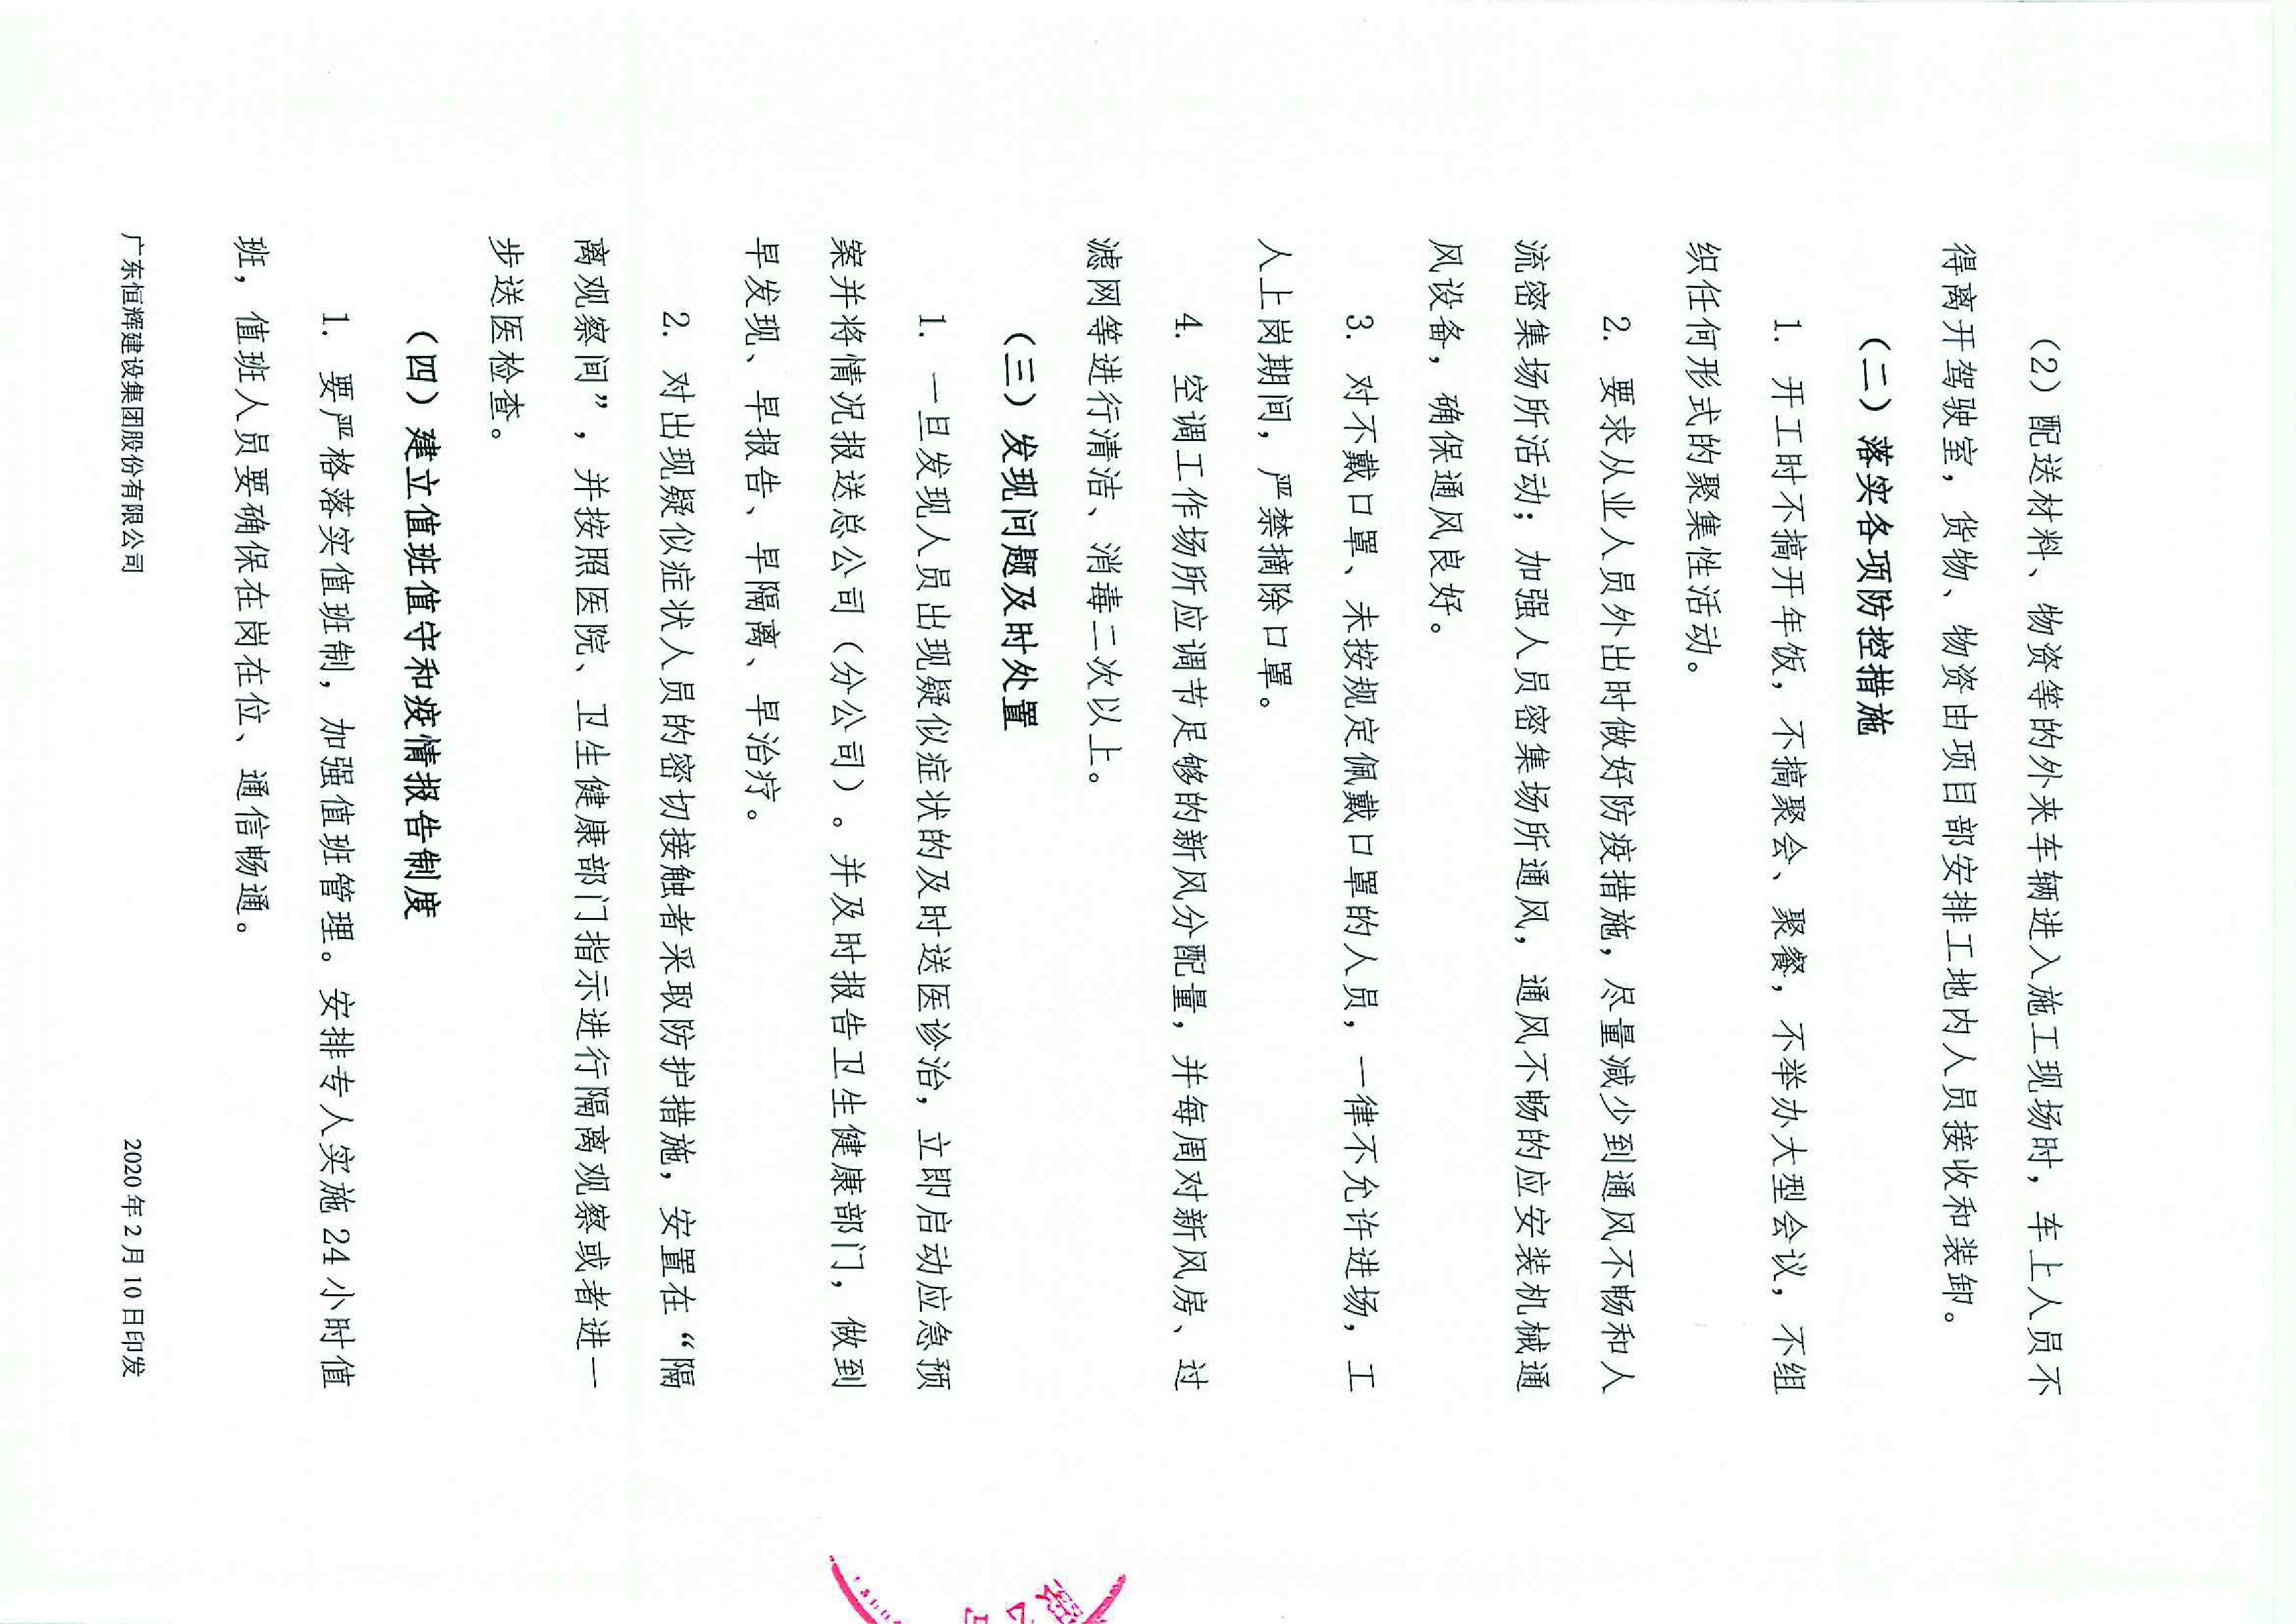 （2）配送材料、物资等的外来车辆进入施工现场时，车上人员不
得离开驾驶室，货物、物资由项目部安排工地内人员接收和装卸。
（二）落实各项防控措施
1. 开工时不搞开年饭，不搞聚会、聚餐，不举办大型会议，不组
织任何形式的聚集性活动。
2. 要求从业人员外出时做好防疫措施，尽量减少到通风不畅和人
流密集场所活动；加强人员密集场所通风，通风不畅的应安装机械通
风设备，确保通风良好。
3. 对不戴口罩、未按规定佩戴口罩的人员，一律不允许进场，工
人上岗期间，严禁摘除口罩。
4. 空调工作场所应调节足够的新风分配量，并每周对新风房、过
滤网等进行清洁、消毒二次以上。
（三）发现问题及时处置
1. 一旦发现人员出现疑似症状的及时送医诊治，立即启动应急预
案并将情况报送总公司（分公司）。并及时报告卫生健康部门，做到
早发现、早报告、早隔离、早治疗。
2. 对出现疑似症状人员的密切接触者采取防护措施，安置在“隔
离观察间”，并按照医院、卫生健康部门指示进行隔离观察或者进一
步送医检查。
（四）建立值班值守和疫情报告制度
1. 要严格落实值班制，加强值班管理。安排专人实施 24 小时值
班，值班人员要确保在岗在位、通信畅通。
广东恒辉建设集团股份有限公司 2020 年 2 月 10 日印发